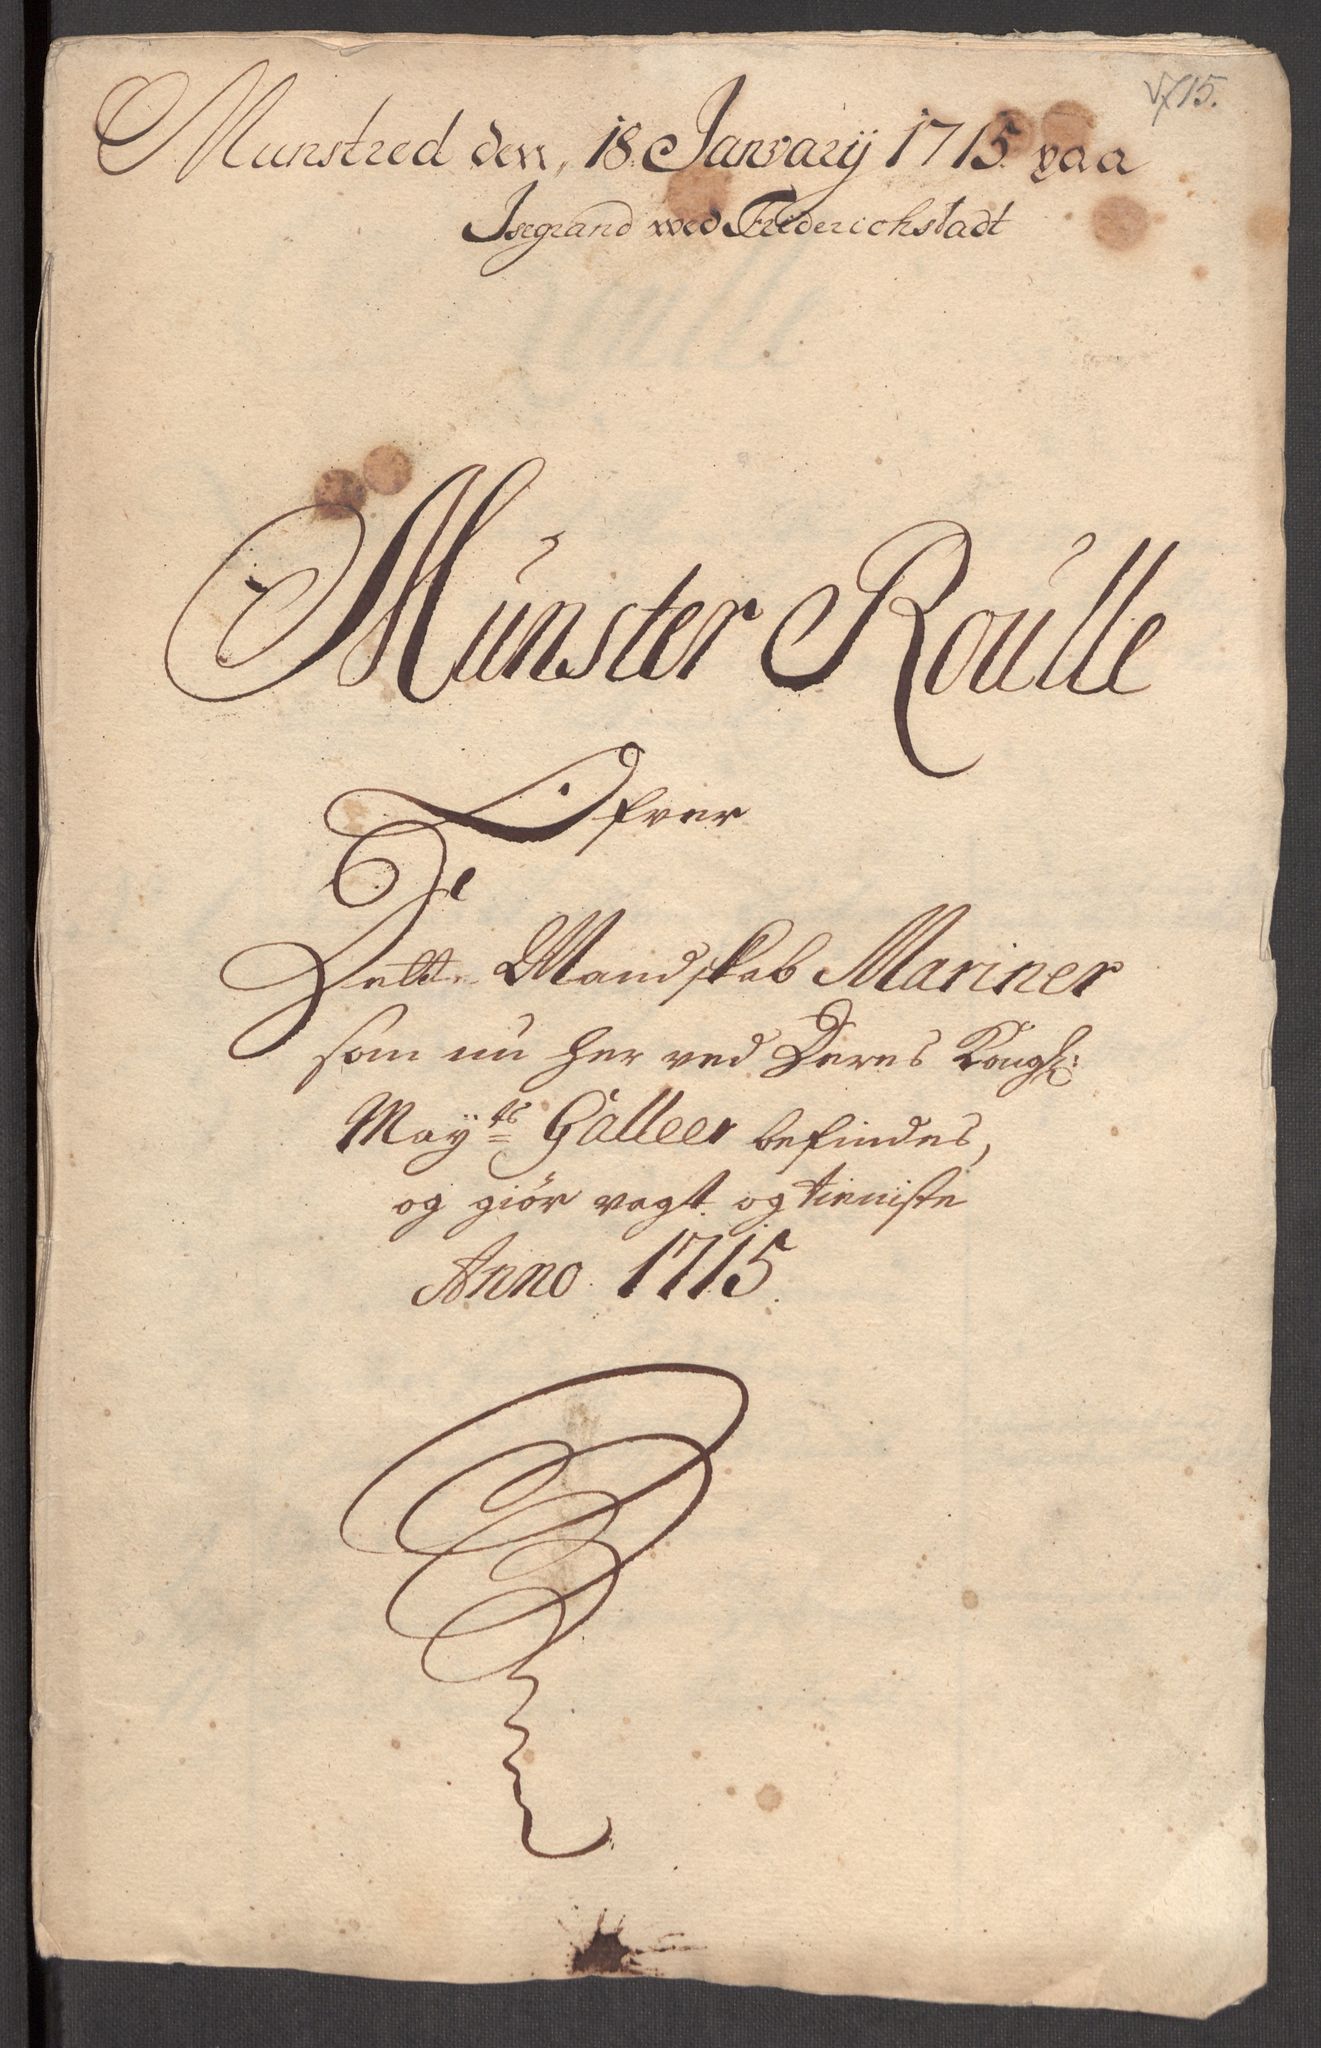 1715.
Munstred den, 18. Januarij 1715. paa
Isegrand wed Friderichstadt
Munster Roulle
Ofver
Dette Mandskab Mariner
som nu her ved Deres Kongl:
Mayts Galleer befindes,
og giör vagt og tieniste
Anno 1715.